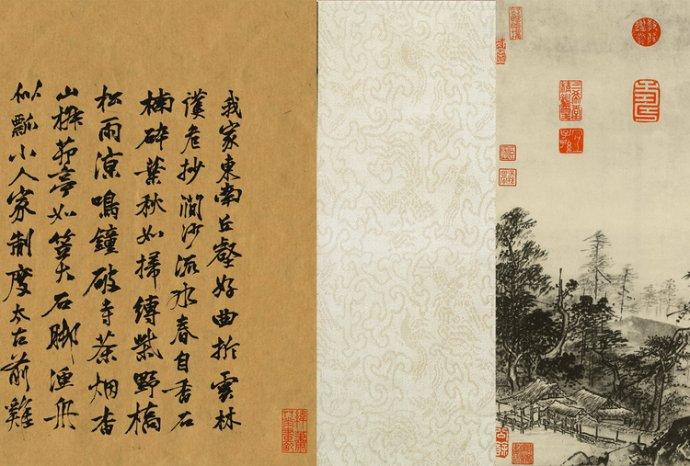 我家東南丘壑好曲折雲林
護危抄澗沙流水春自香石
楠碎葉秋如掃縛柴野橋
松雨涼鳴鐘破寺茶烟杳
山椒茆亭如笠大石脚漁舟
似瓢小人家制度太古前雞